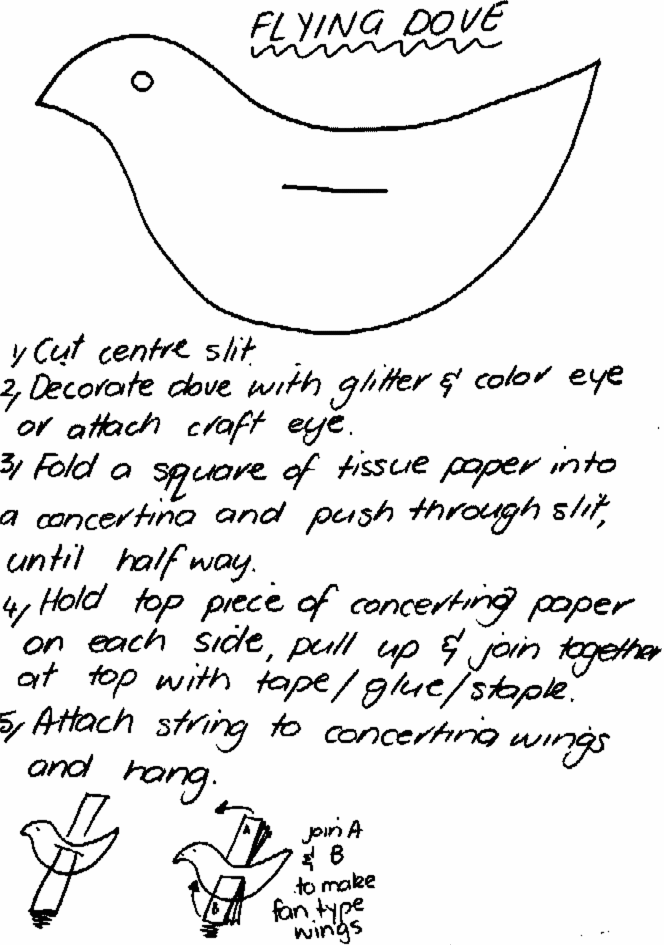 FLYING DOVE
1, Cut centre slit.
2, Decorate dove with glitter & color eye
or attach craft eye.
3, Fold a square of tissue paper into
a concertina and push through slit,
until half way.
4, Hold top piece of concerting paper
on each side, pull up & join together
at top with tape/glue/staple.
5, Attach string to concertina wings
and hang.
A
B
join A
& B
to make
fan type
wings